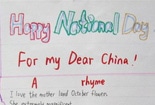 Happy National Day
For my Dear China!
A rhyme
I love the mother land October flowers.
She extremely magnificent